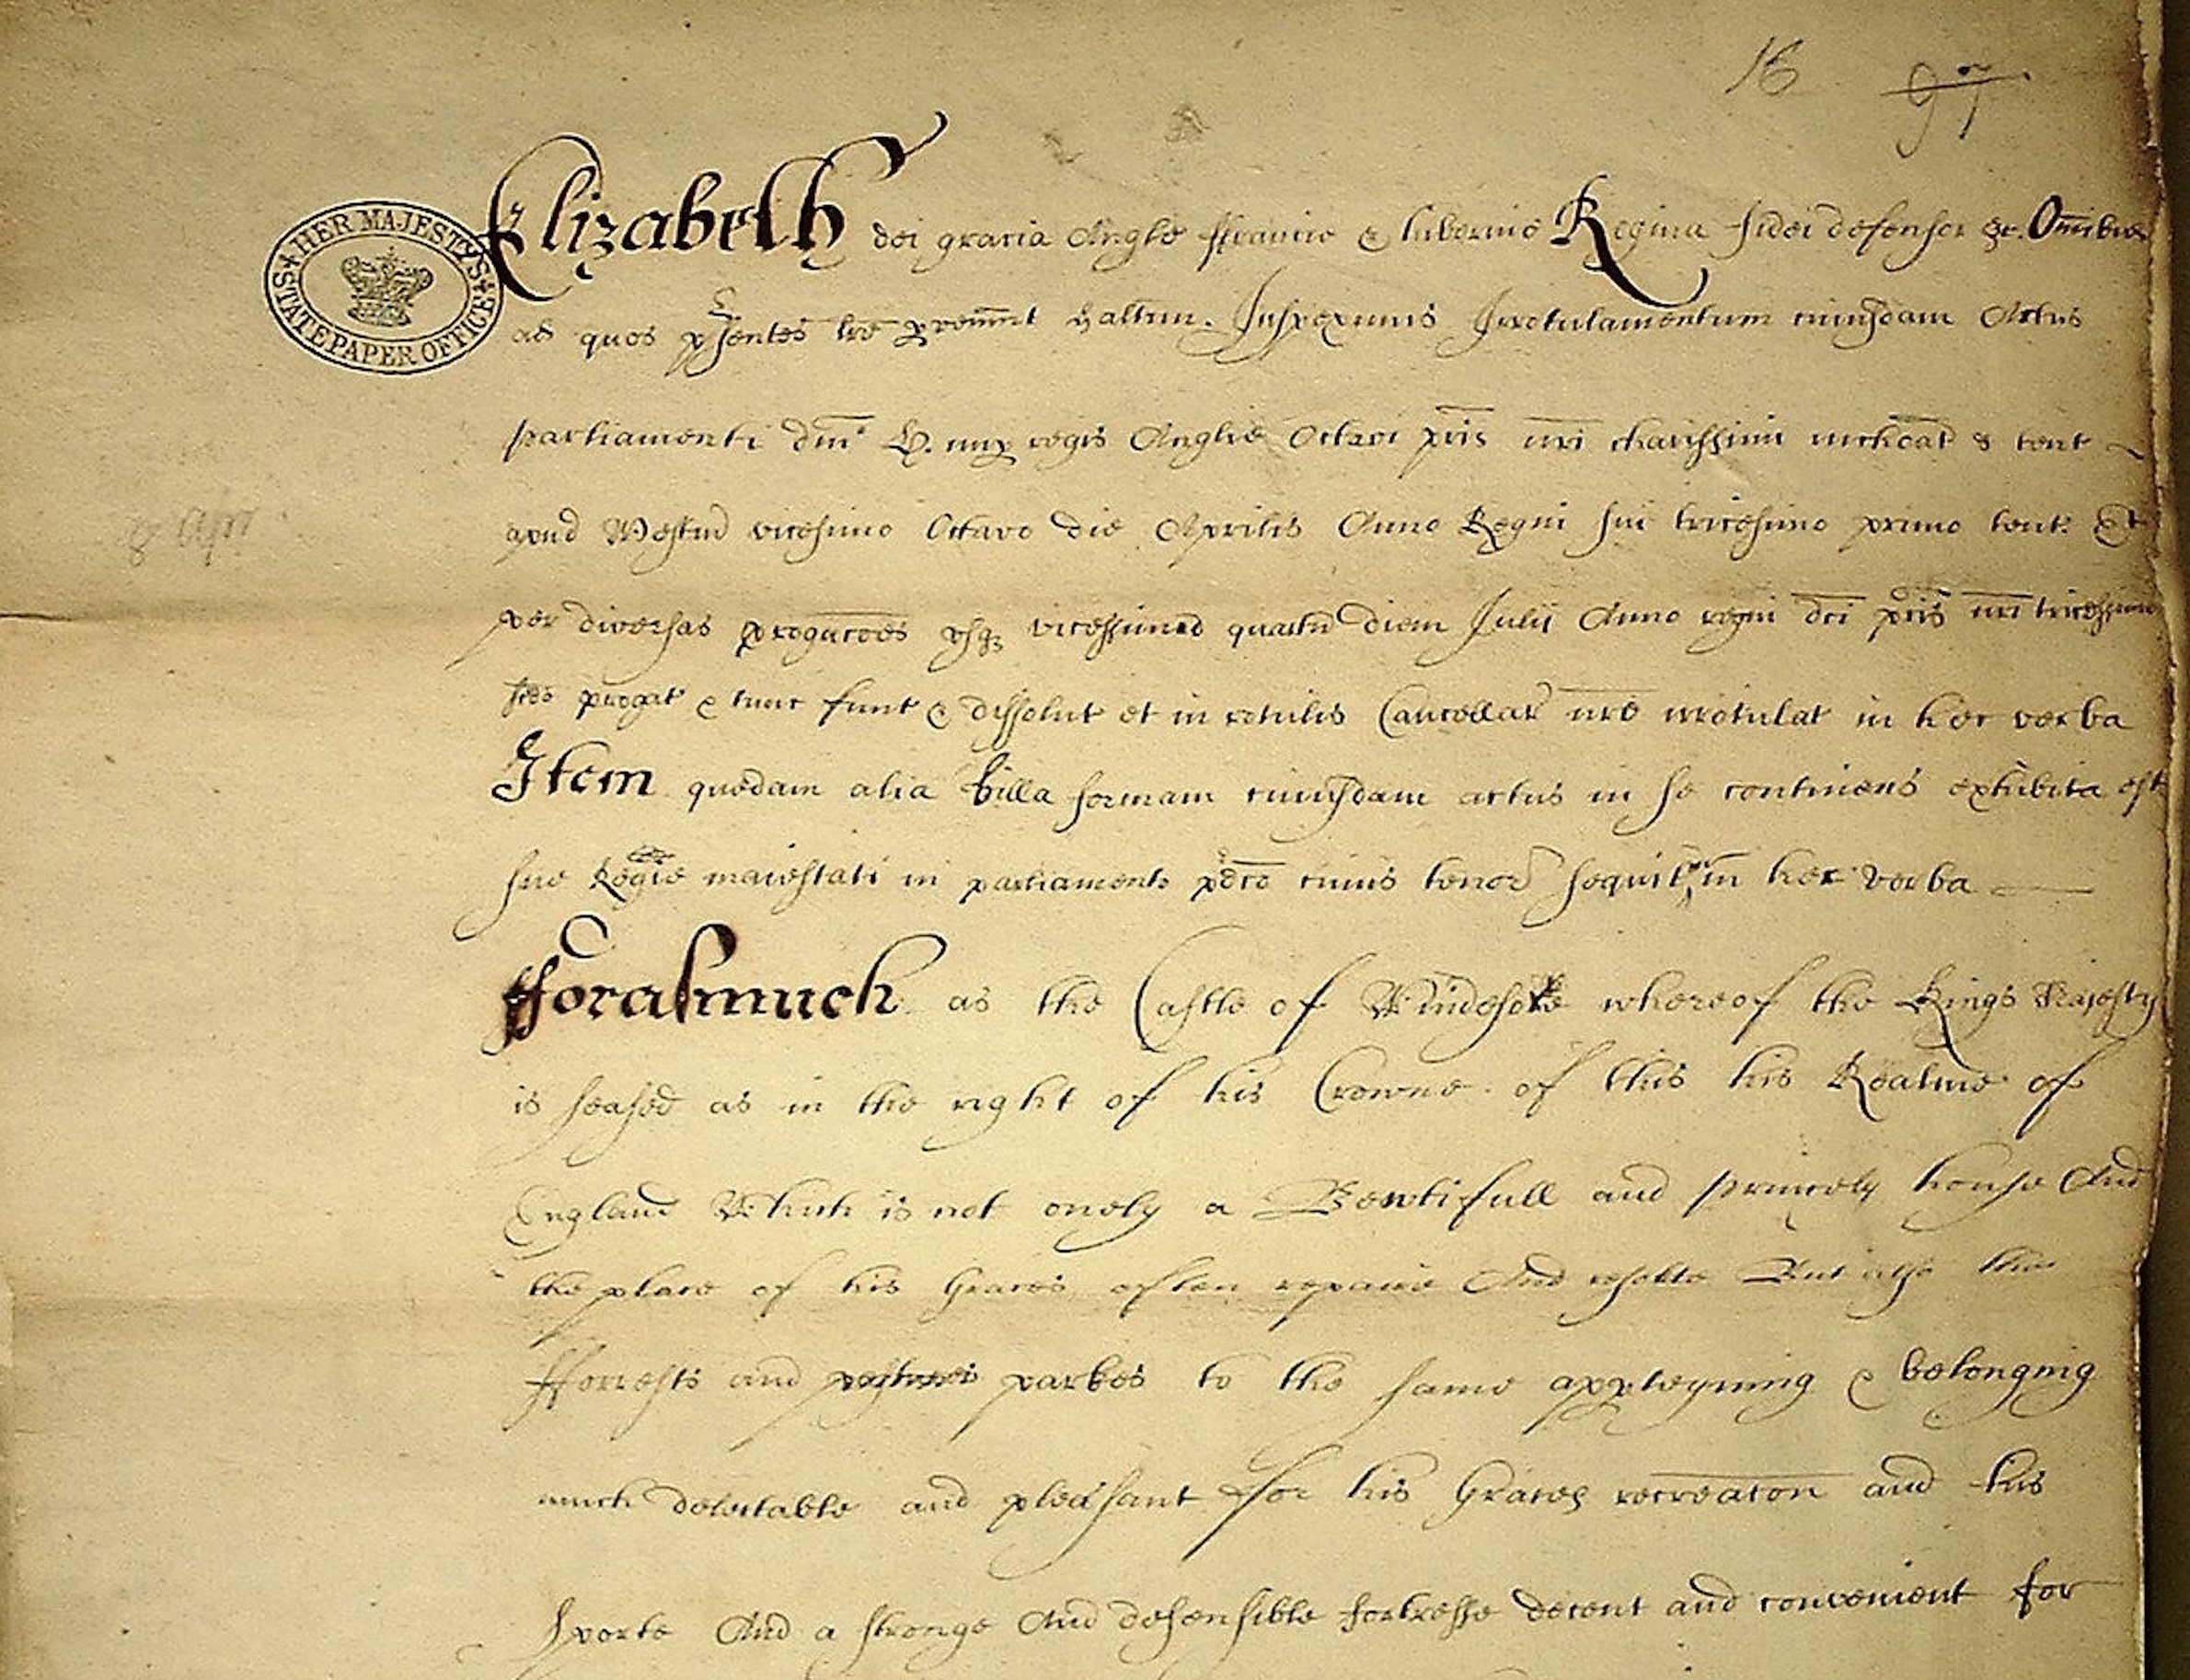 16 97
HER MAJESTY'S STATE PAPER OFFICE
Elizabeth dei gracia Angle ffrancie & hibernie Regina fidei defensor &c. Omibus
ad quos psentes lre pvenint saltm. Inspexmus Irrotulamentum cuiusdam Actus
parliamenti dni H. nup regis Anglie Octavi pris nri charissimi inchoat & tent
apud Westm vicesimo Octavo die Aprilis Anno Regni sui tricesimo primo tent. Et
per diversas progacoes usq vicessimed quartu diem Julii Anno regni dci pris nri tricessimo
progat & tunc funt & dissolut et in rotulis Cancellar nre irrotulat in hec verba
Item quedam alia billa formam cuiusdam actus in se continens exhibita est
sue Regie maiestati in parliamento pdco cuius tenor sequit in hec verba
fforasmuch as the Castle of Windesore whereof the Kings Majesty
is seased as in the right of his Crowne of this his Realme of
England Which is not onely a Bewtifull and princely house And
the place of his Graces often repaire And resorte But also the
fforrests and parkes to the same apperteyning & belonging
much delectable and pleasant for his Graces recreacon and his
sporte And a stronge And defensible fortresse decent and convenient for
8 Apr